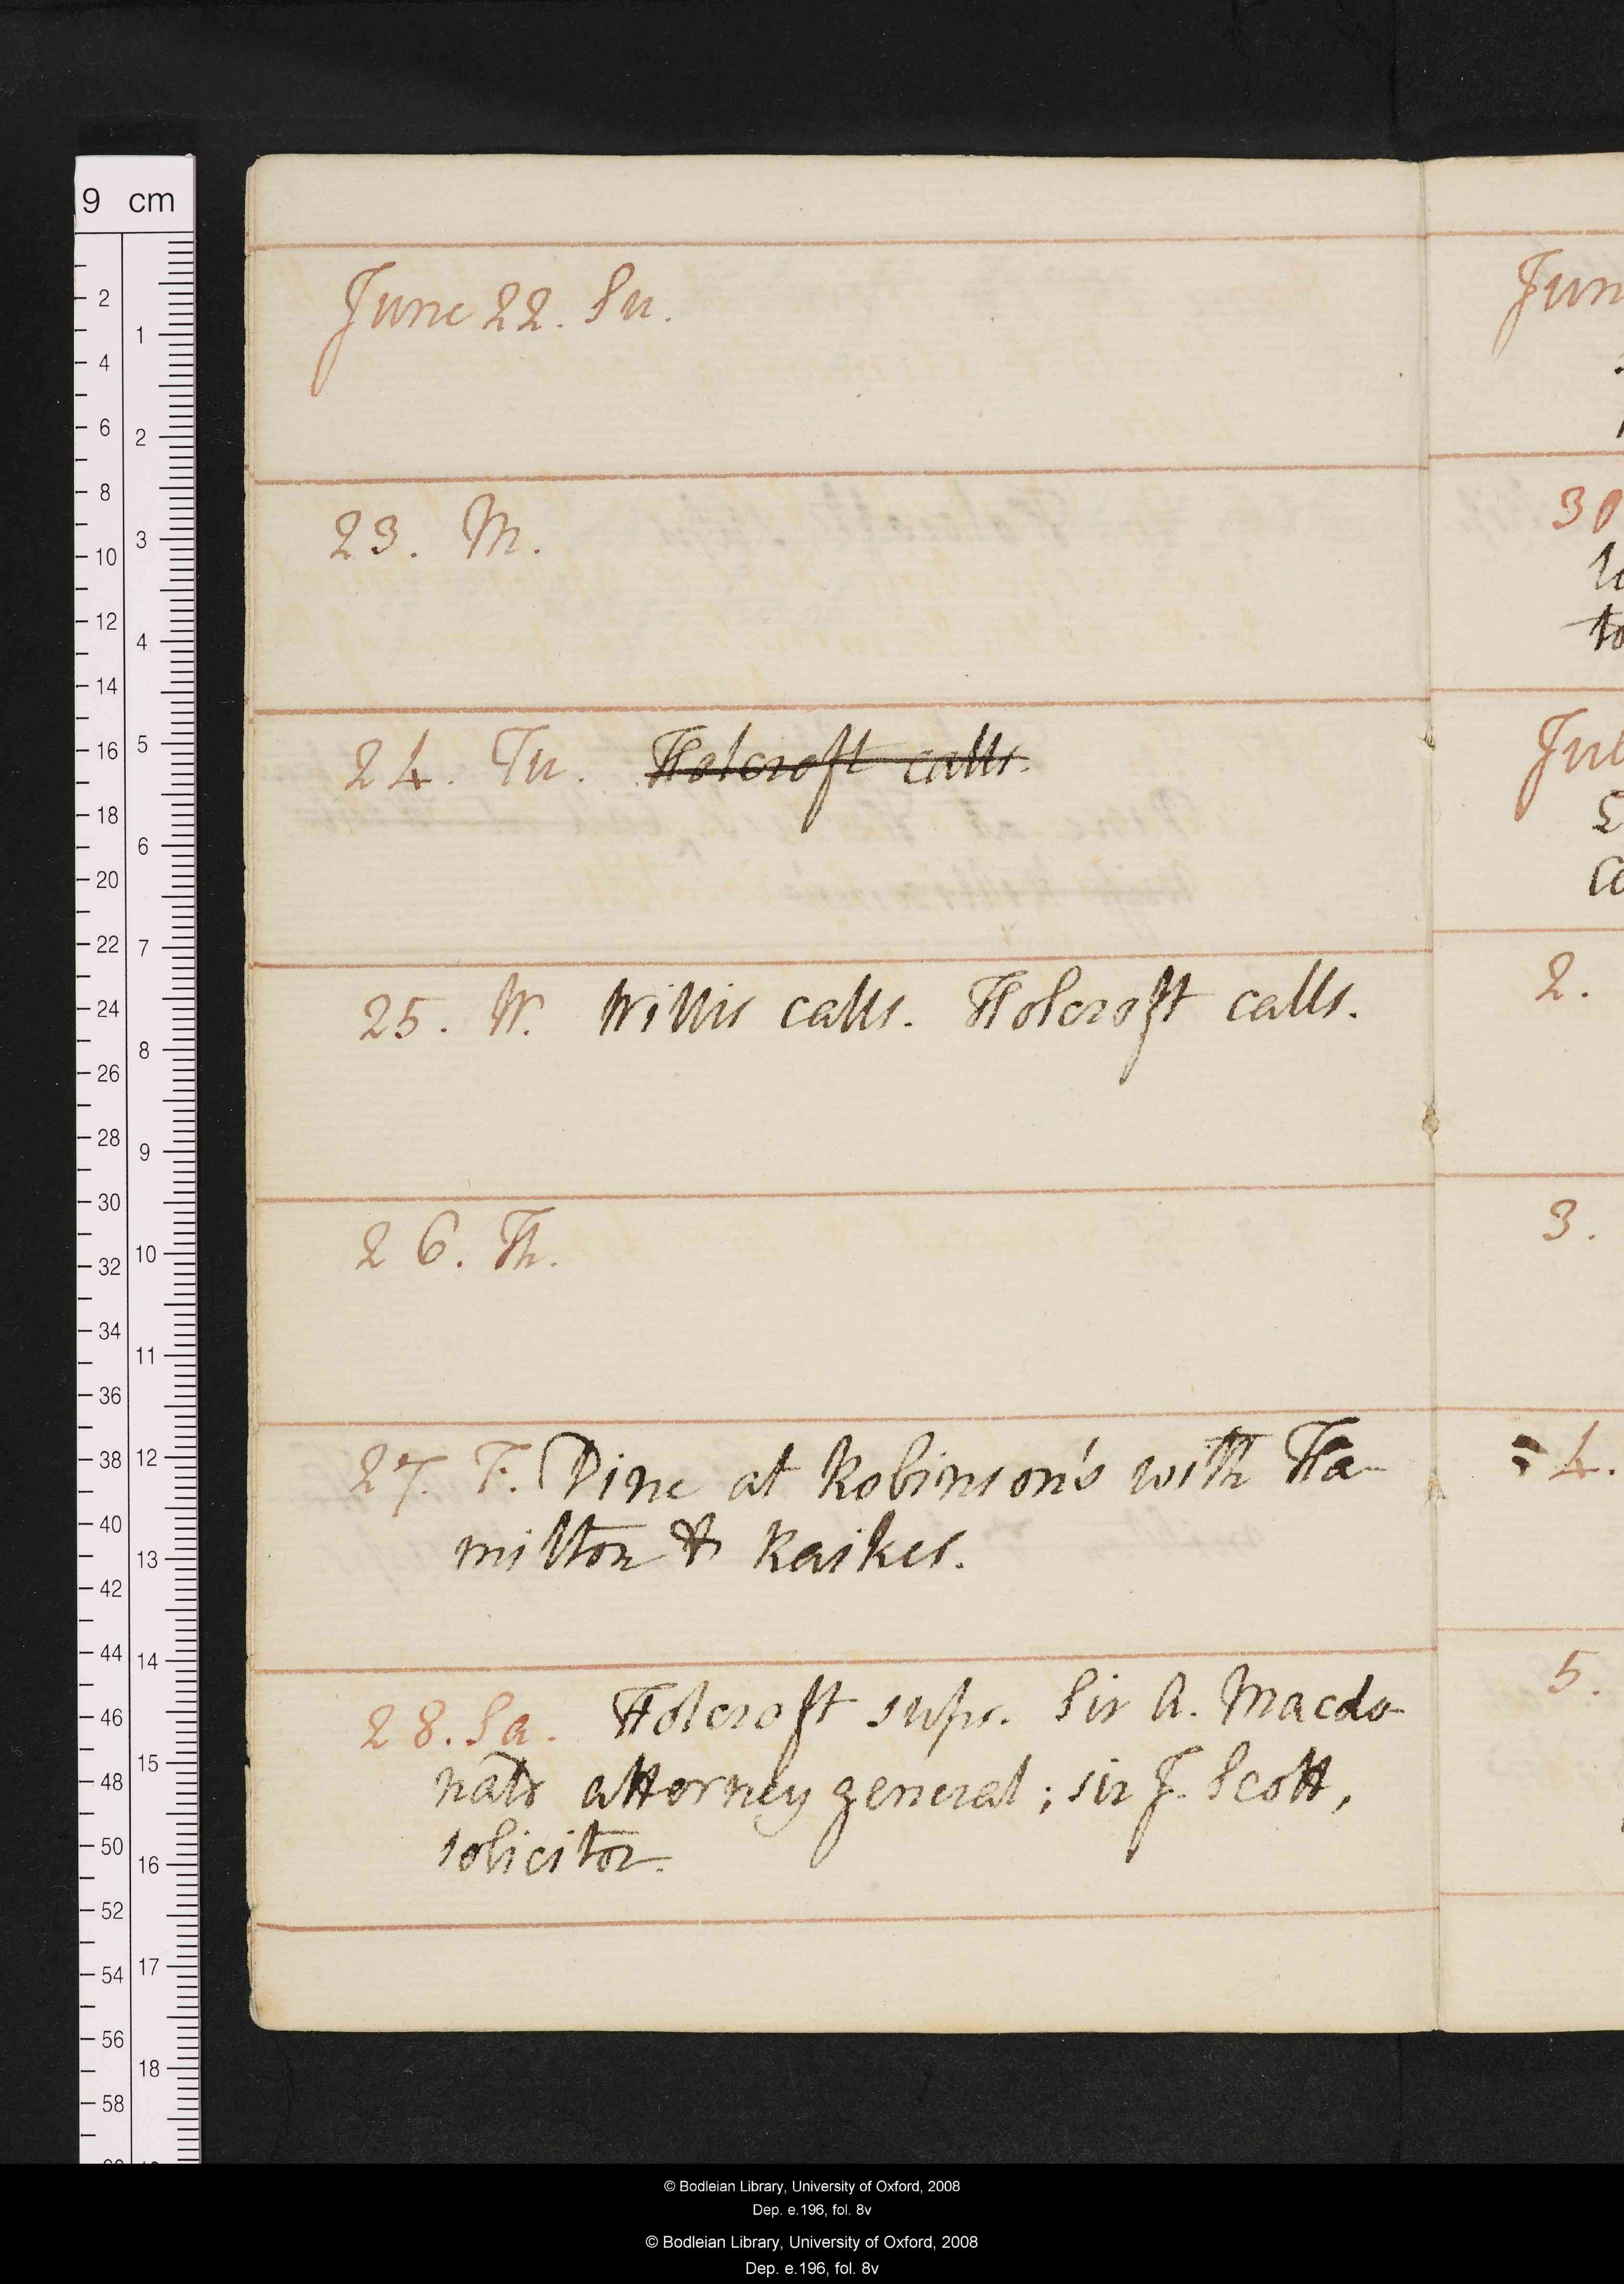 June 22. Su.
23. M.
24. Tu. Holcroft calls.
25. W. Willis calls. Holcroft calls.
26. Th.
27. F. Dine at Robinson's with Ha-
milton & Raikes.
28. Sa. Holcroft sups. Sir A. Macdo-
nald attorney general; sir J. Scott,
solicitor.
Jun
30
to
Jul
2.
3.
4.
5.
9 cm
© Bodleian Library, University of Oxford, 2008
Dep. e.196, fol. 8v
© Bodleian Library, University of Oxford, 2008
Dep. e.196, fol. 8v